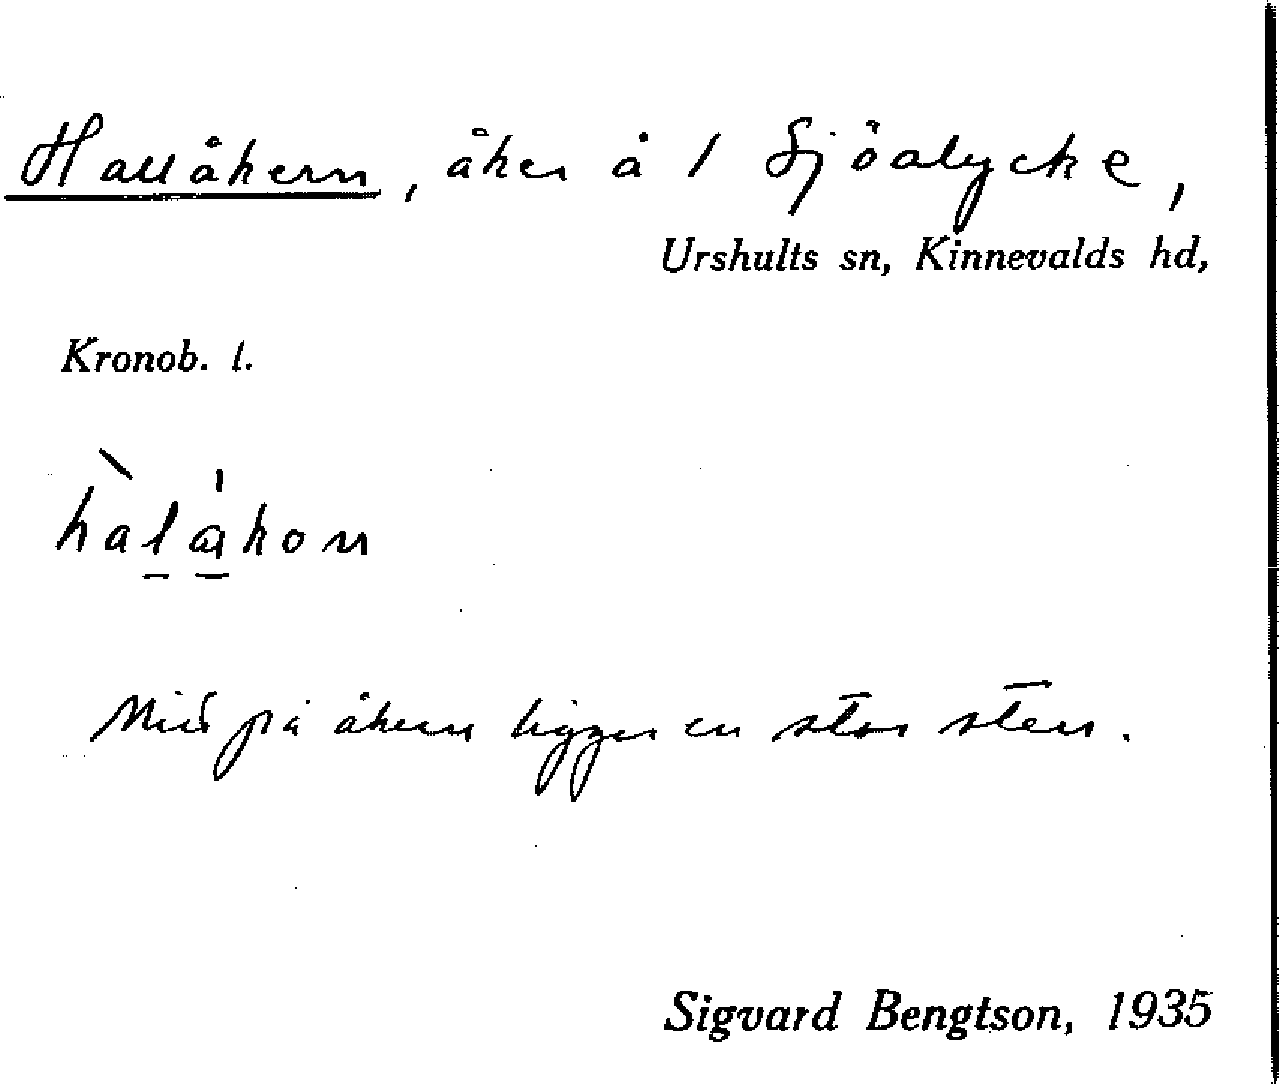 Hallåkern, åker å 1 Sjöalycke,
Urshults sn, Kinnevalds hd,
Kronob. l.
hàlákon
Mitt på åkern ligger en stor sten.
Sigvard Bengtson, 1935